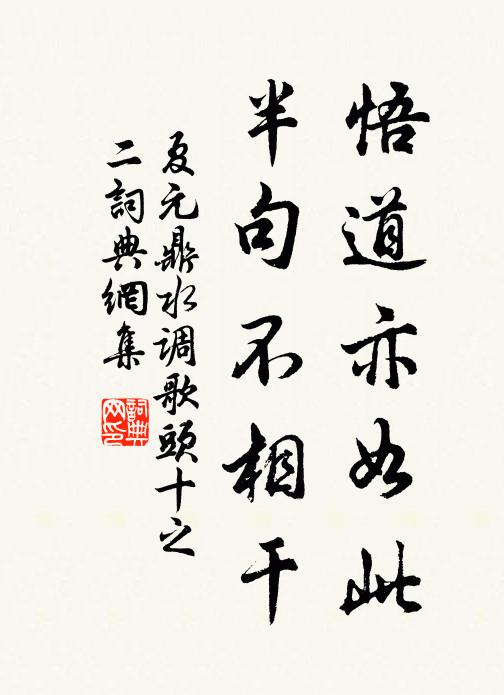 悟道亦如此
半句不相干
夏元鼎水调歌頭十之
二詞典網集
詞典
网印